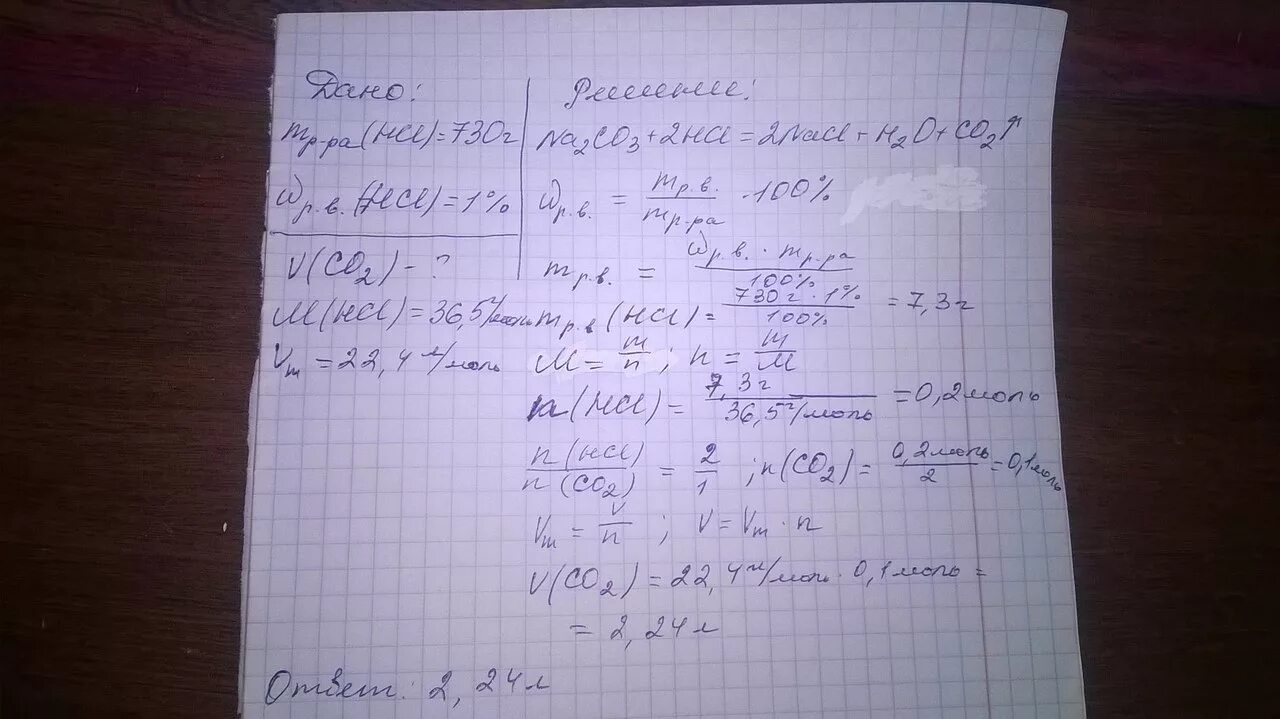 Дано:
mр-ра(HCl)=730г
ωр.в.(HCl)=1%
V(CO₂)-?
M(HCl)=36,5г/моль
Vm=22,4 л/моль
Решение:
Na₂CO₃+2HCl=2NaCl+H₂O+CO₂↑
ωр.в. = mр.в./mр-ра ·100%
mр.в. = ωр.в. · mр-ра/100%
mр.в(HCl)= 730г·1%/100% =7,3г
M= m/n ; n= m/M
n(HCl)= 7,3г/36,5г/моль =0,2моль
n(HCl)/n(CO₂) = 2/1 ; n(CO₂)= 0,2моль/2 =0,1моль
Vm= V/n ; V=Vm·n
V(CO₂)=22,4л/моль·0,1моль=
=2,24л
Ответ: 2,24л